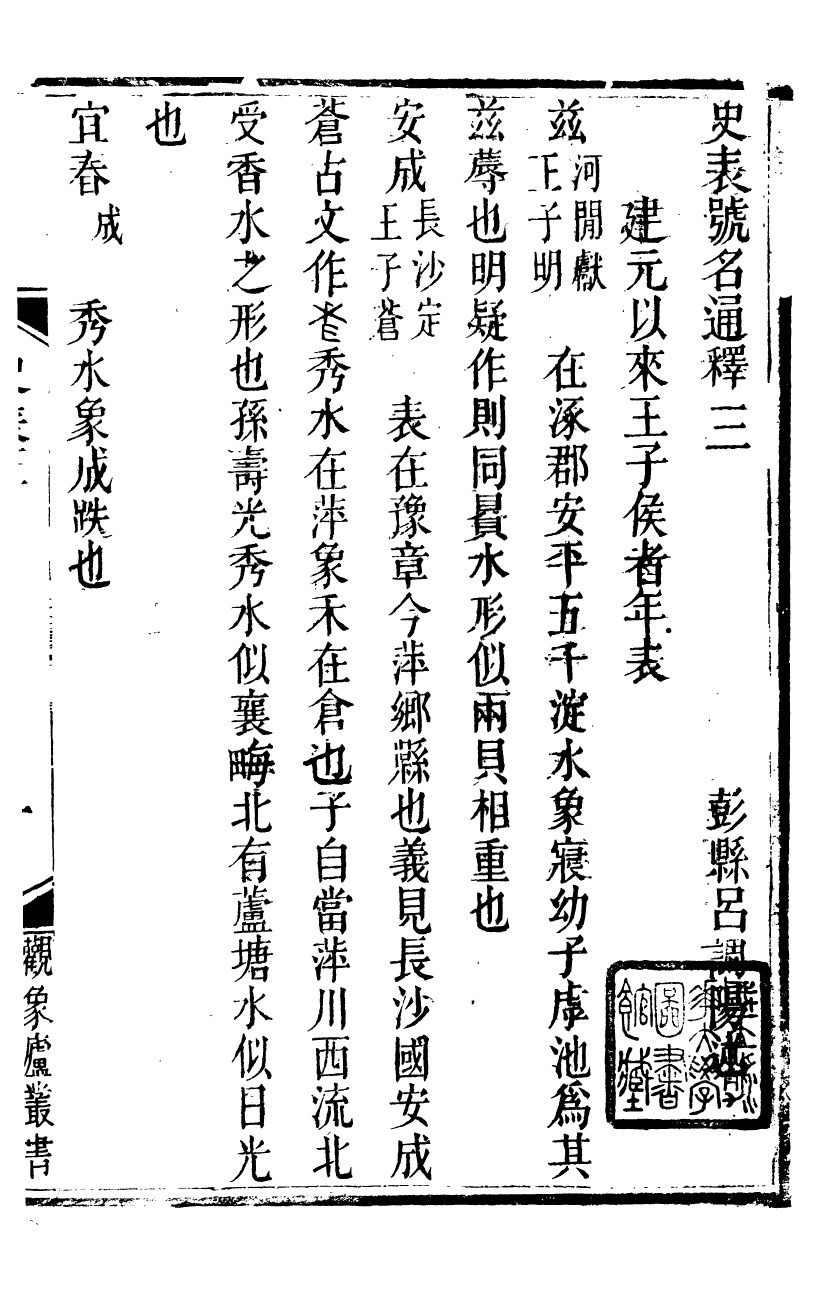 史表號名通釋三
彭縣呂調陽述
建元以來王子侯者年表
茲 河閒獻王子明 在涿郡安平五千淀水象寢幼子虖池爲其
茲蓐也明疑作則同㬥水形似兩貝相重也
安成 長沙定王子蒼 表在豫章今萍鄉縣也義見長沙國安成
蒼古文作秀水在萍象禾在倉也子自當萍川西流北
受香水之形也孫壽光秀水似襄畮北有蘆塘水似日光
也
宜春 成 秀水象成跌也
觀象廬叢書